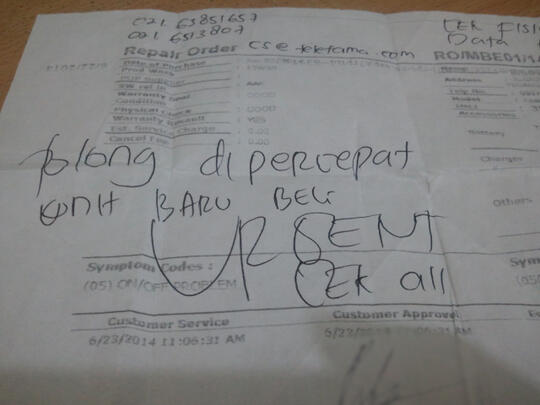 021 63851657
021 6513807
CEK FISI
Data
Repair Order
cs@teletama.com
RO/MBE01/1
Date of Purchase
SW rel in
Warranty Seal
Condition
Physical Check : GOOD
Warranty Result : YES
Est. Service Charge : 0.00
Cancel Fee : 0.00
Address
Model
Accessories
Battery
Charger
Others
tolong dipercepat
UNIT BARU BELI
URGENT
CEK all
Symptom Codes :
(05) ON/OFF PROBLEM
Sym
(05)
Customer Service
Customer Approval
6/23/2014 11:06:31 AM
6/23/2014 11:06:31 AM